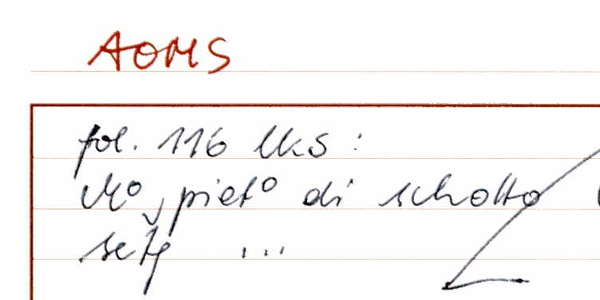 AOMS
fol. 116 lks :
Mº pietº di schotto
...